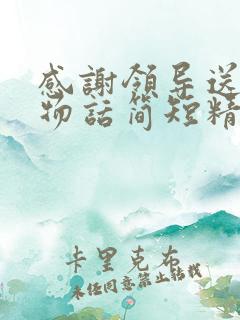 感謝領导送
物话简短精
卡里克布
未经同意禁止转载